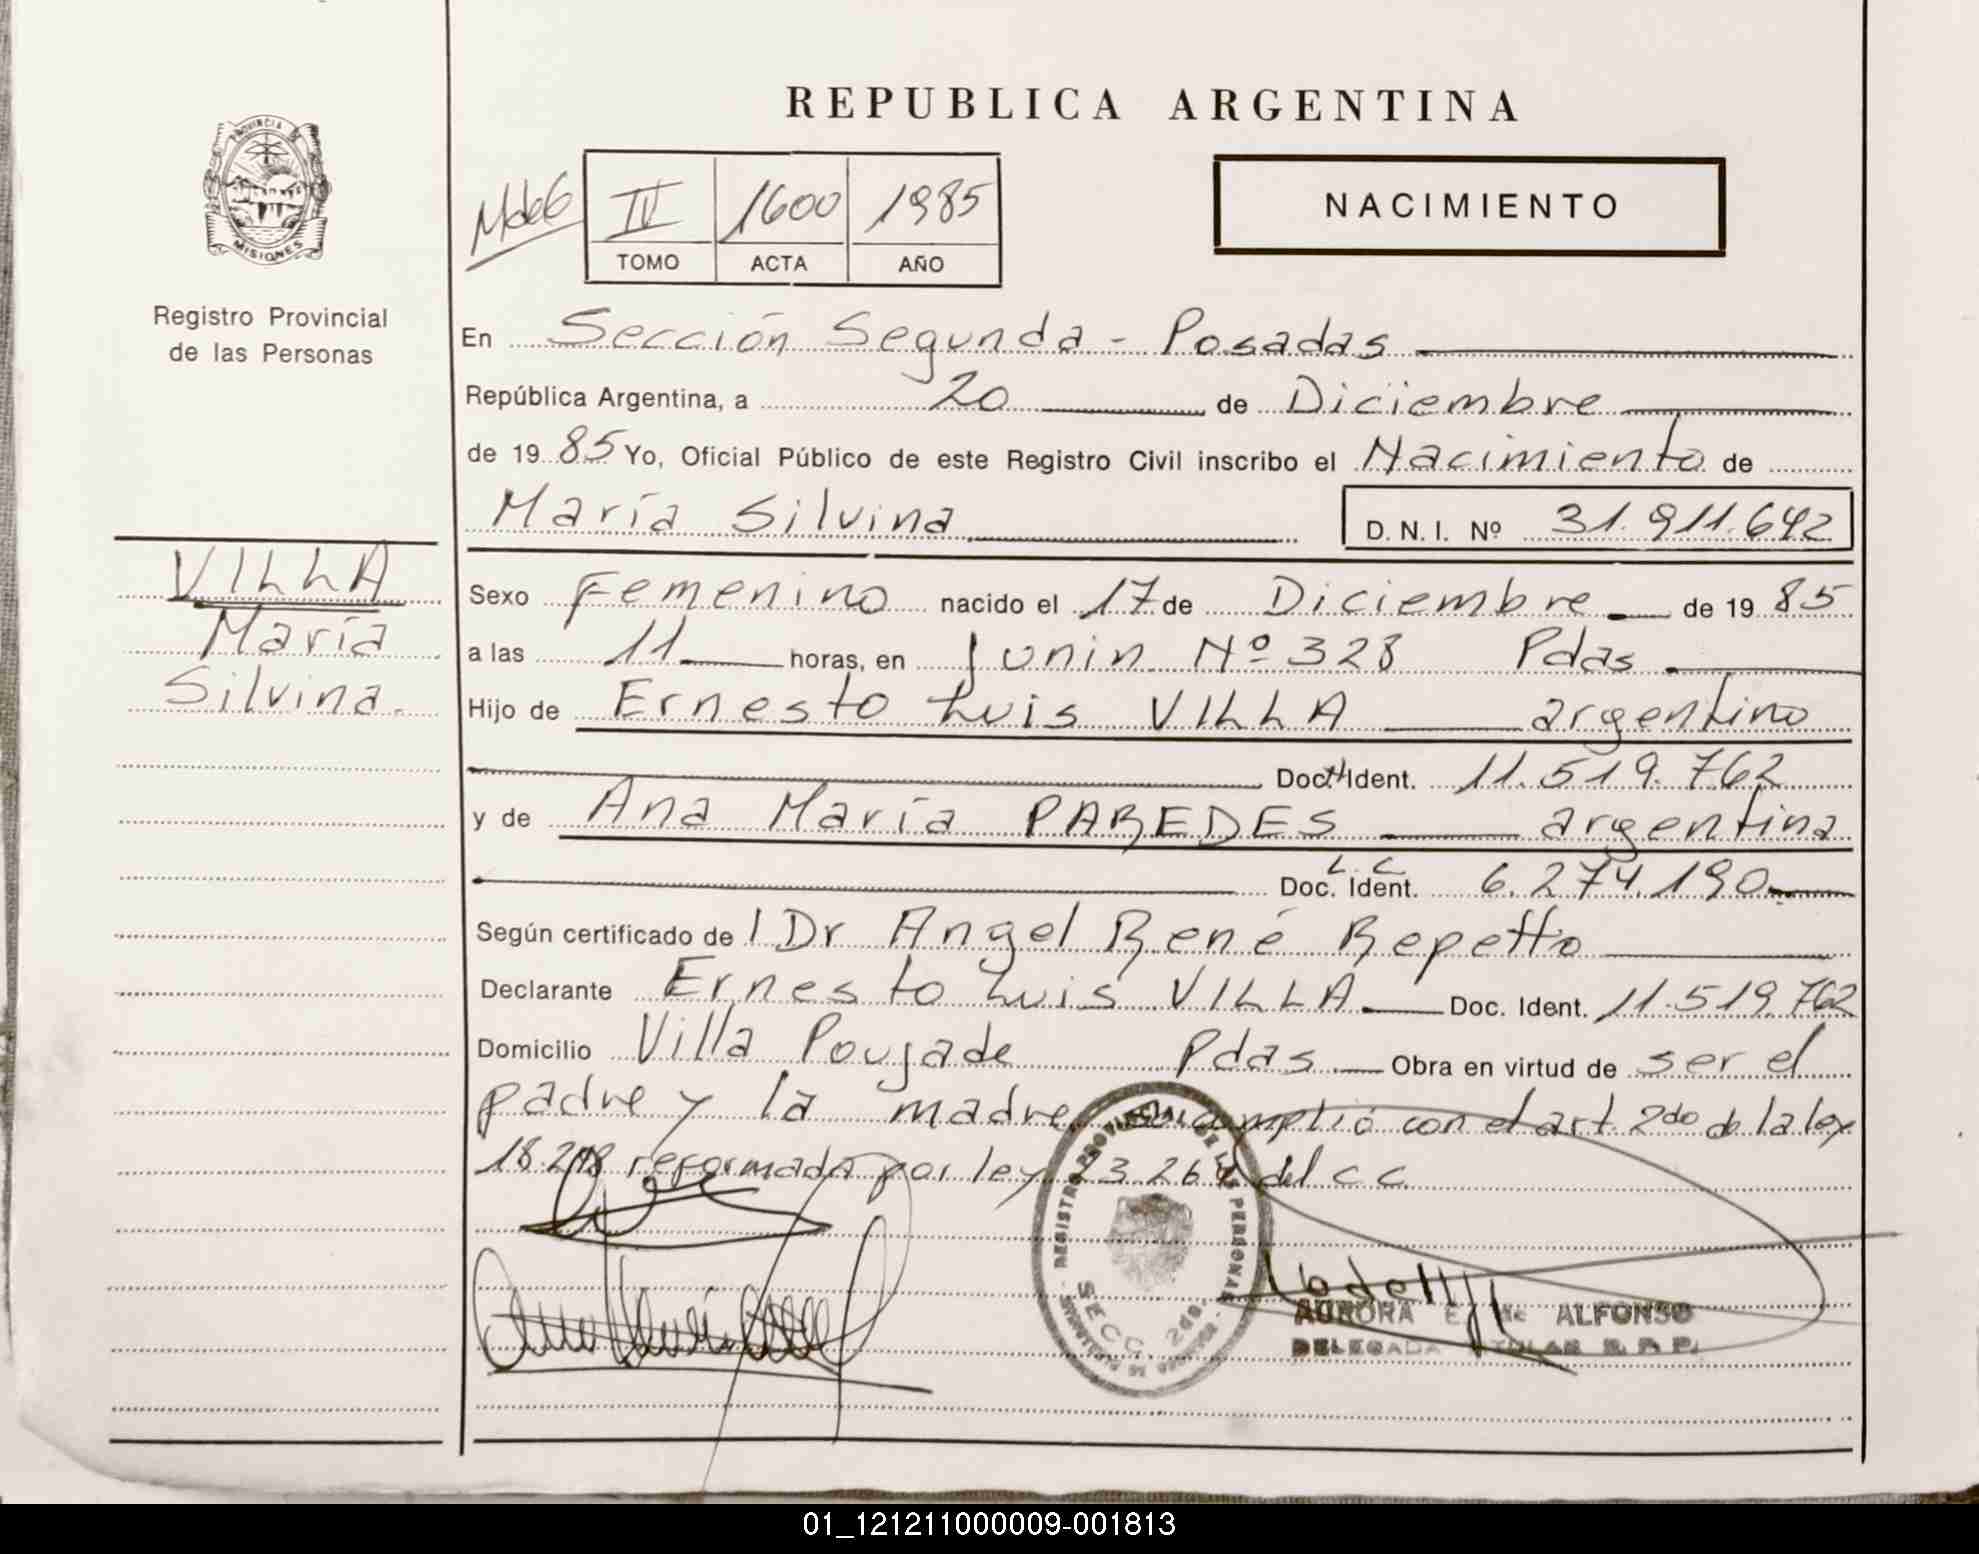 REPUBLICA ARGENTINA
PROVINCIA DE
MISIONES
Registro Provincial
de las Personas
NACIMIENTO
IV 1600 1985
TOMO ACTA AÑO
En Sección Segunda - Posadas
República Argentina, a 20 de Diciembre
de 1985 Yo, Oficial Público de este Registro Civil inscribo el Nacimiento de
María Silvina D. N. I. Nº 31.911.642
VILLA
María
Silvina.
Sexo Femenino nacido el 17 de Diciembre de 1985
a las 11 horas, en Junin Nº 328 Pdas
Hijo de Ernesto Luis VILLA argentino
Doc. Ident. 11.519.762
y de Ana María PAREDES argentina
L.C
Doc. Ident. 6.274.190
Según certificado de Dr Angel René Repetto
Declarante Ernesto Luis VILLA Doc. Ident. 11.519.762
Domicilio Villa Poujade Pdas Obra en virtud de ser el
padre y la madre cumplió con el art. 2do de la ley
18.248 reformada por ley 23.264 del c c.
REGISTRO PROVINCIAL DE LAS PERSONAS
SECC. 2da.
AURORA E. de ALFONSO
DELEGADA TITULAR R. P. P.
01_121211000009-001813